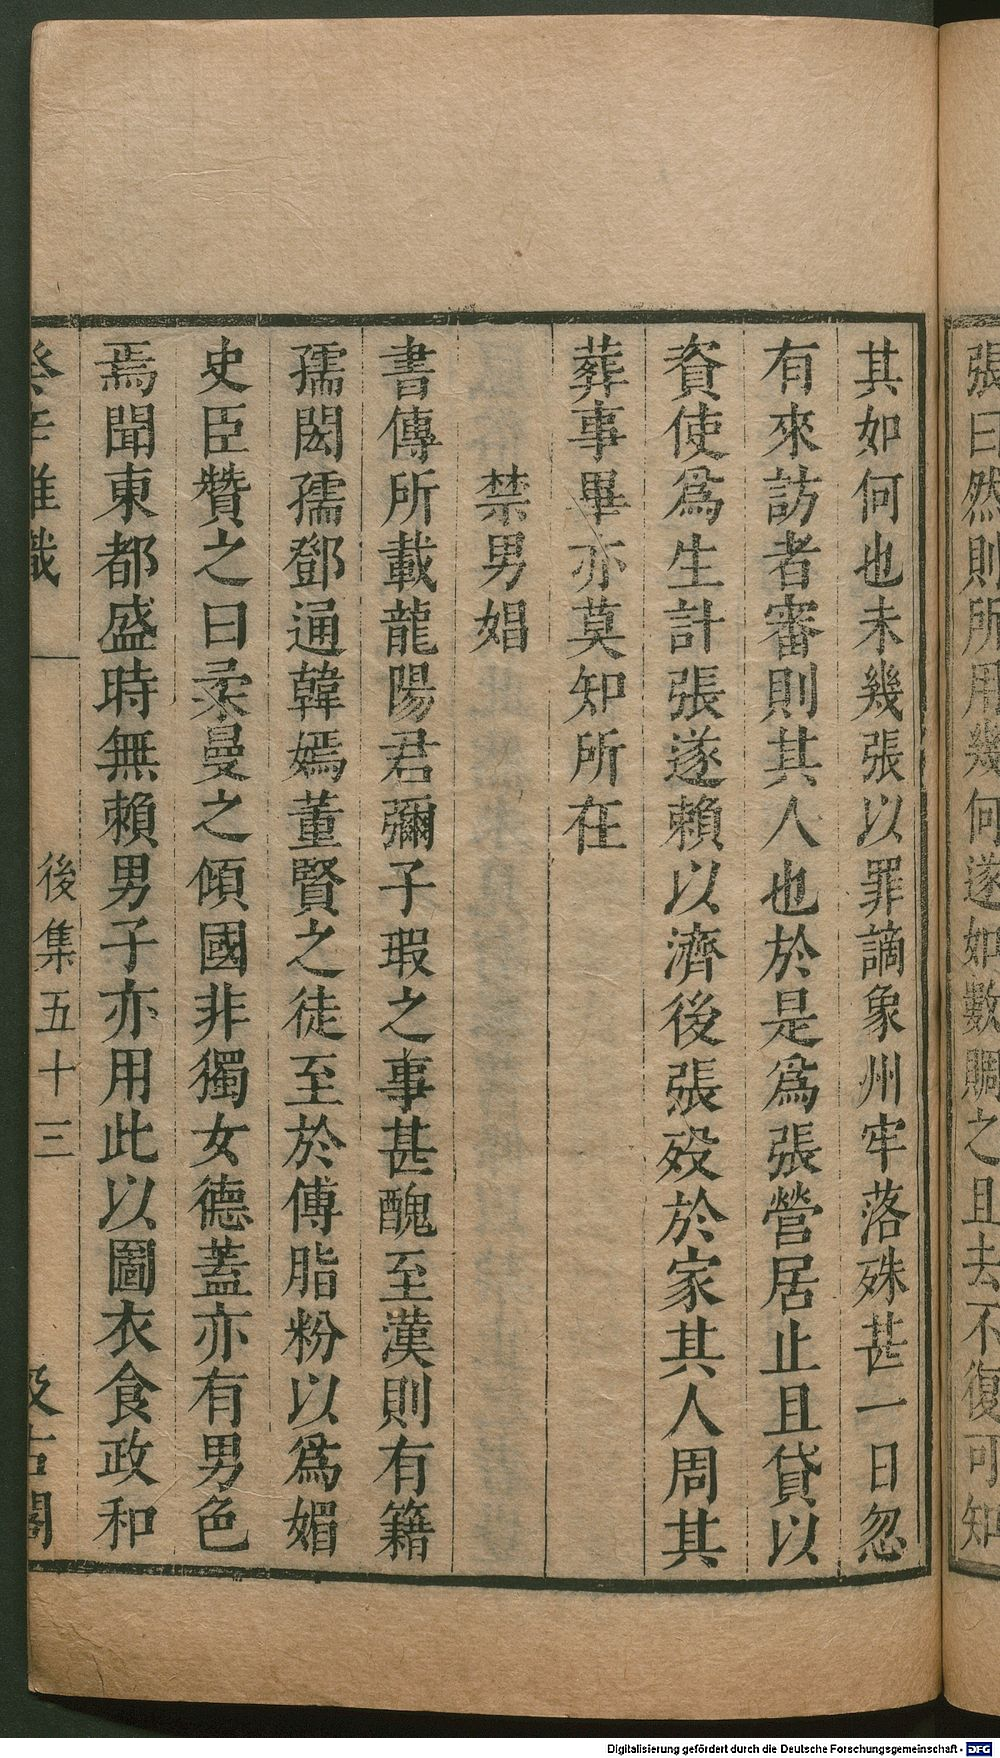 張曰然則所用幾何遂如數賙之且去不復可知
其如何也未幾張以罪謫象州牢落殊甚一日忽
有來訪者審則其人也於是爲張營居止且貸以
資使爲生計張遂賴以濟後張歿於家其人周其
葬事畢亦莫知所在
禁男娼
書傳所載龍陽君彌子瑕之事甚醜至漢則有籍
孺閎孺鄧通韓嫣董賢之徒至於傅脂粉以爲媚
史臣贊之曰柔曼之傾國非獨女德蓋亦有男色
焉聞東都盛時無賴男子亦用此以圖衣食政和
癸辛雜識 後集五十三 汲古閣
Digitalisierung gefördert durch die Deutsche Forschungsgemeinschaft - DFG